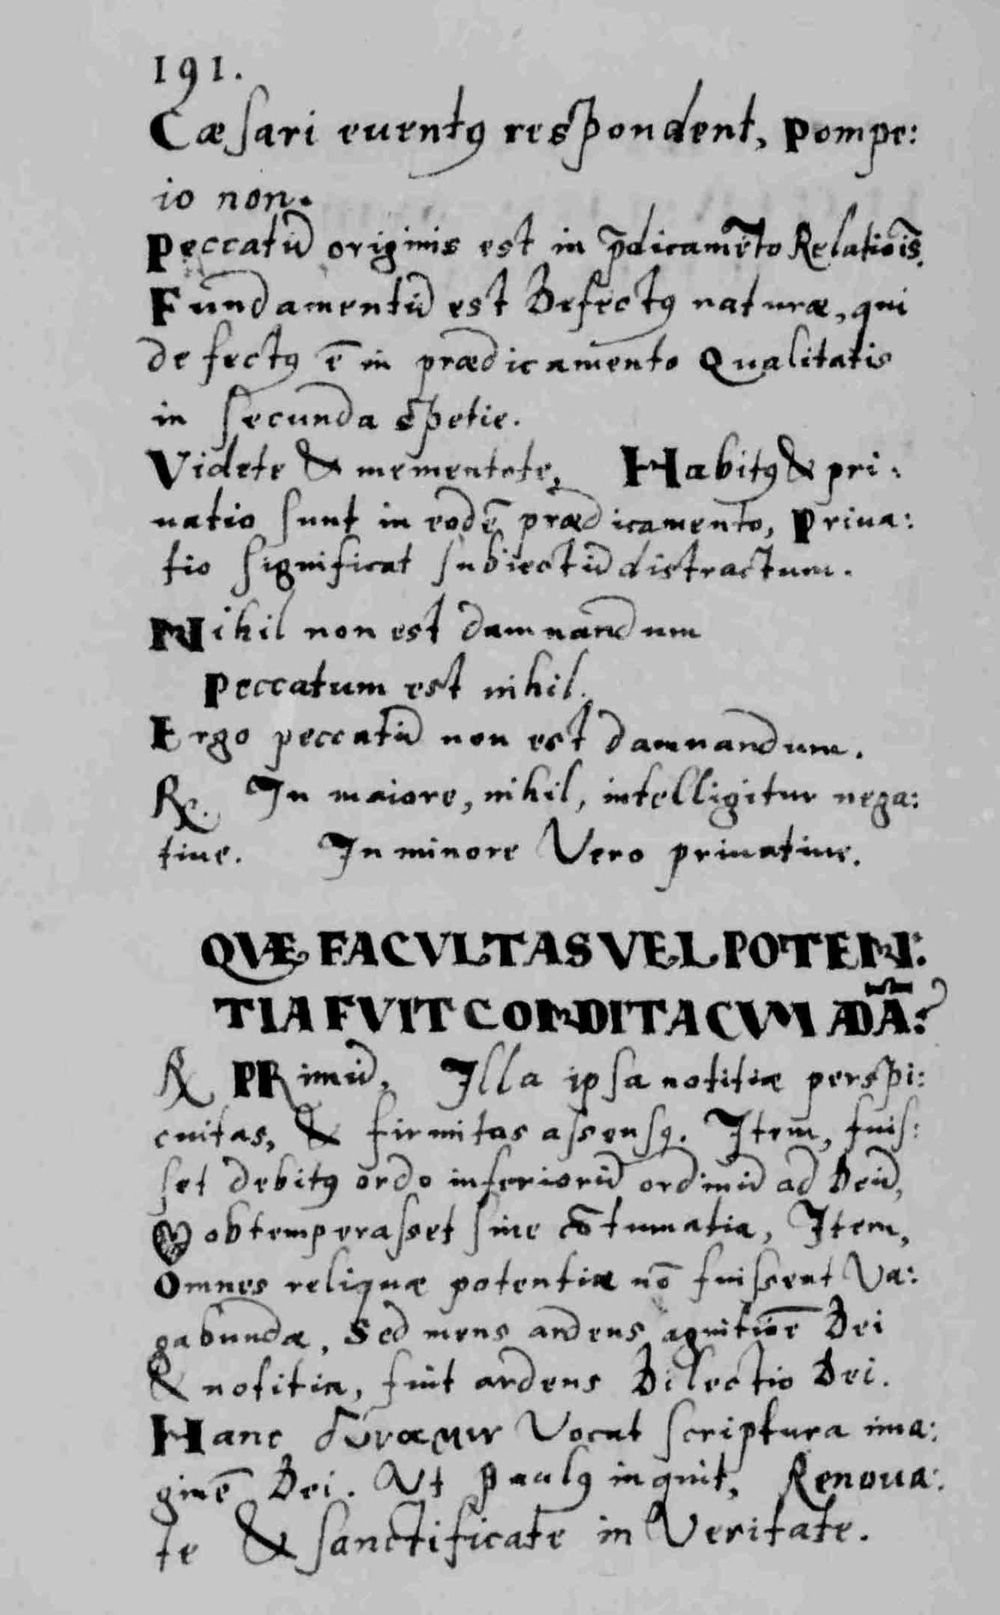 191.
Cæsari euentꝰ respondent, Pompe:
io non.
Peccatū originis est in p̄dicamēto Relatiōis.
Fundamentū est Defectꝰ naturæ, qui
defectꝰ ē in prædicamento Qualitatis
in secunda spetie.
Videte & mementote, Habitꝰ & pri:
uatio sunt in eodē prædicamento, Priua:
tio significat subiectū distractum.
Nihil non est damnandum
Peccatum est nihil.
Ergo peccatū non est damnandum.
℞. In maiore, nihil, intelligitur nega:
tiue. In minore Vero priuatiue.
QVÆ FACVLTAS VEL POTEN:
TIA FVIT CONDITA CVM ADĀ?
℞ PRimū, Illa ipsa notitiæ perspi:
cuitas, & firmitas assensꝰ. Item, fuis:
set debitꝰ ordo inferiorū ordinū ad Deū,
obtemperasset sine cōtumatia, Item,
Omnes reliquæ potentiæ nō fuissent Va:
gabundæ, Sed mens ardens agnitiōe Dei
& notitia, fuit ardens Dilectio Dei.
Hanc Vocat scriptura ima:
ginē Dei. Vt Paulꝰ inquit, Renoua:
te & sanctificate in Veritate.